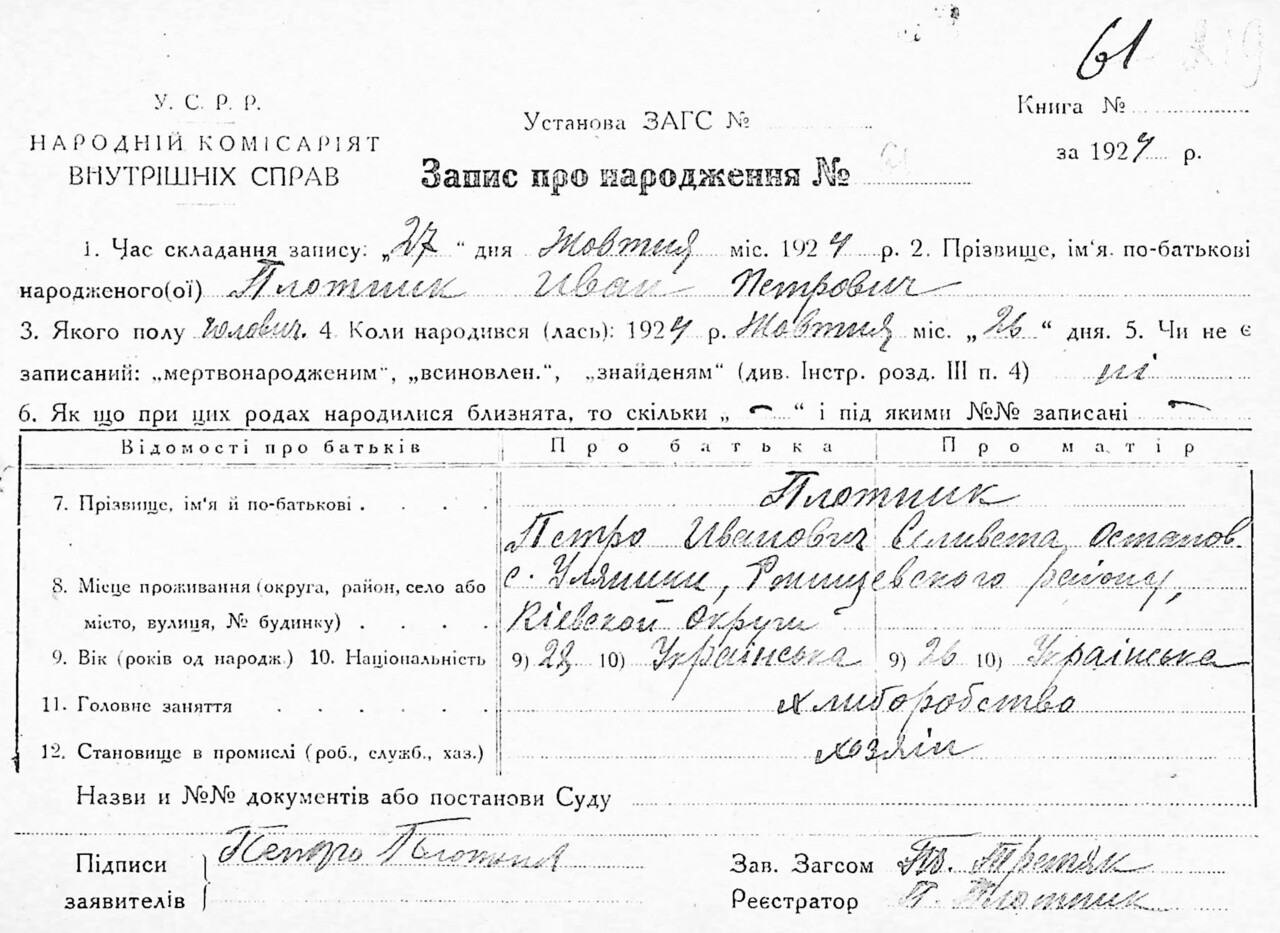 61 219
У. С. Р. Р.
НАРОДНІЙ КОМІСАРІЯТ
ВНУТРІШНІХ СПРАВ
Установа ЗАГС №
Запис про народження № 61
Книга №
за 1924 р.
1. Час складання запису: „27 “ дня Жовтня міс. 1924 р. 2. Прізвище, ім'я. по-батькові
народженого(ої) Плотник Иван Петрович
3. Якого полу чоловіч. 4. Коли народився (лась): 1924 р. Жовтня міс. „ 26 “ дня. 5. Чи не є
записаний: „мертвонародженим“, „всиновлен.“, „знайденям“ (див. Інстр. розд. III п. 4) ні
6. Як що при цих родах народилися близнята, то скільки „ – “ і під якими №№ записані –
Відомості про батьків Про батька Про матір
7. Прізвище, ім'я й по-батькові . . . . Плотник
Петро Иванович Селивета Остапов.
8. Місце проживання (округа, район, село або с. Уляники, Ржищевского району,
місто, вулиця, № будинку) . . . . Кіевской Округи
9. Вік (років од народж.) 10. Національність 9) 28 10) Українська 9) 26 10) Українська
11. Головне заняття . . . . . . Хлиборобство
12. Становище в промислі (роб., служб., хаз.) хозяін
Назви и №№ документів або постанови Суду
Підписи Петро Плотник
заявителів
Зав. Загсом Третяк
Реєстратор П. Плотник